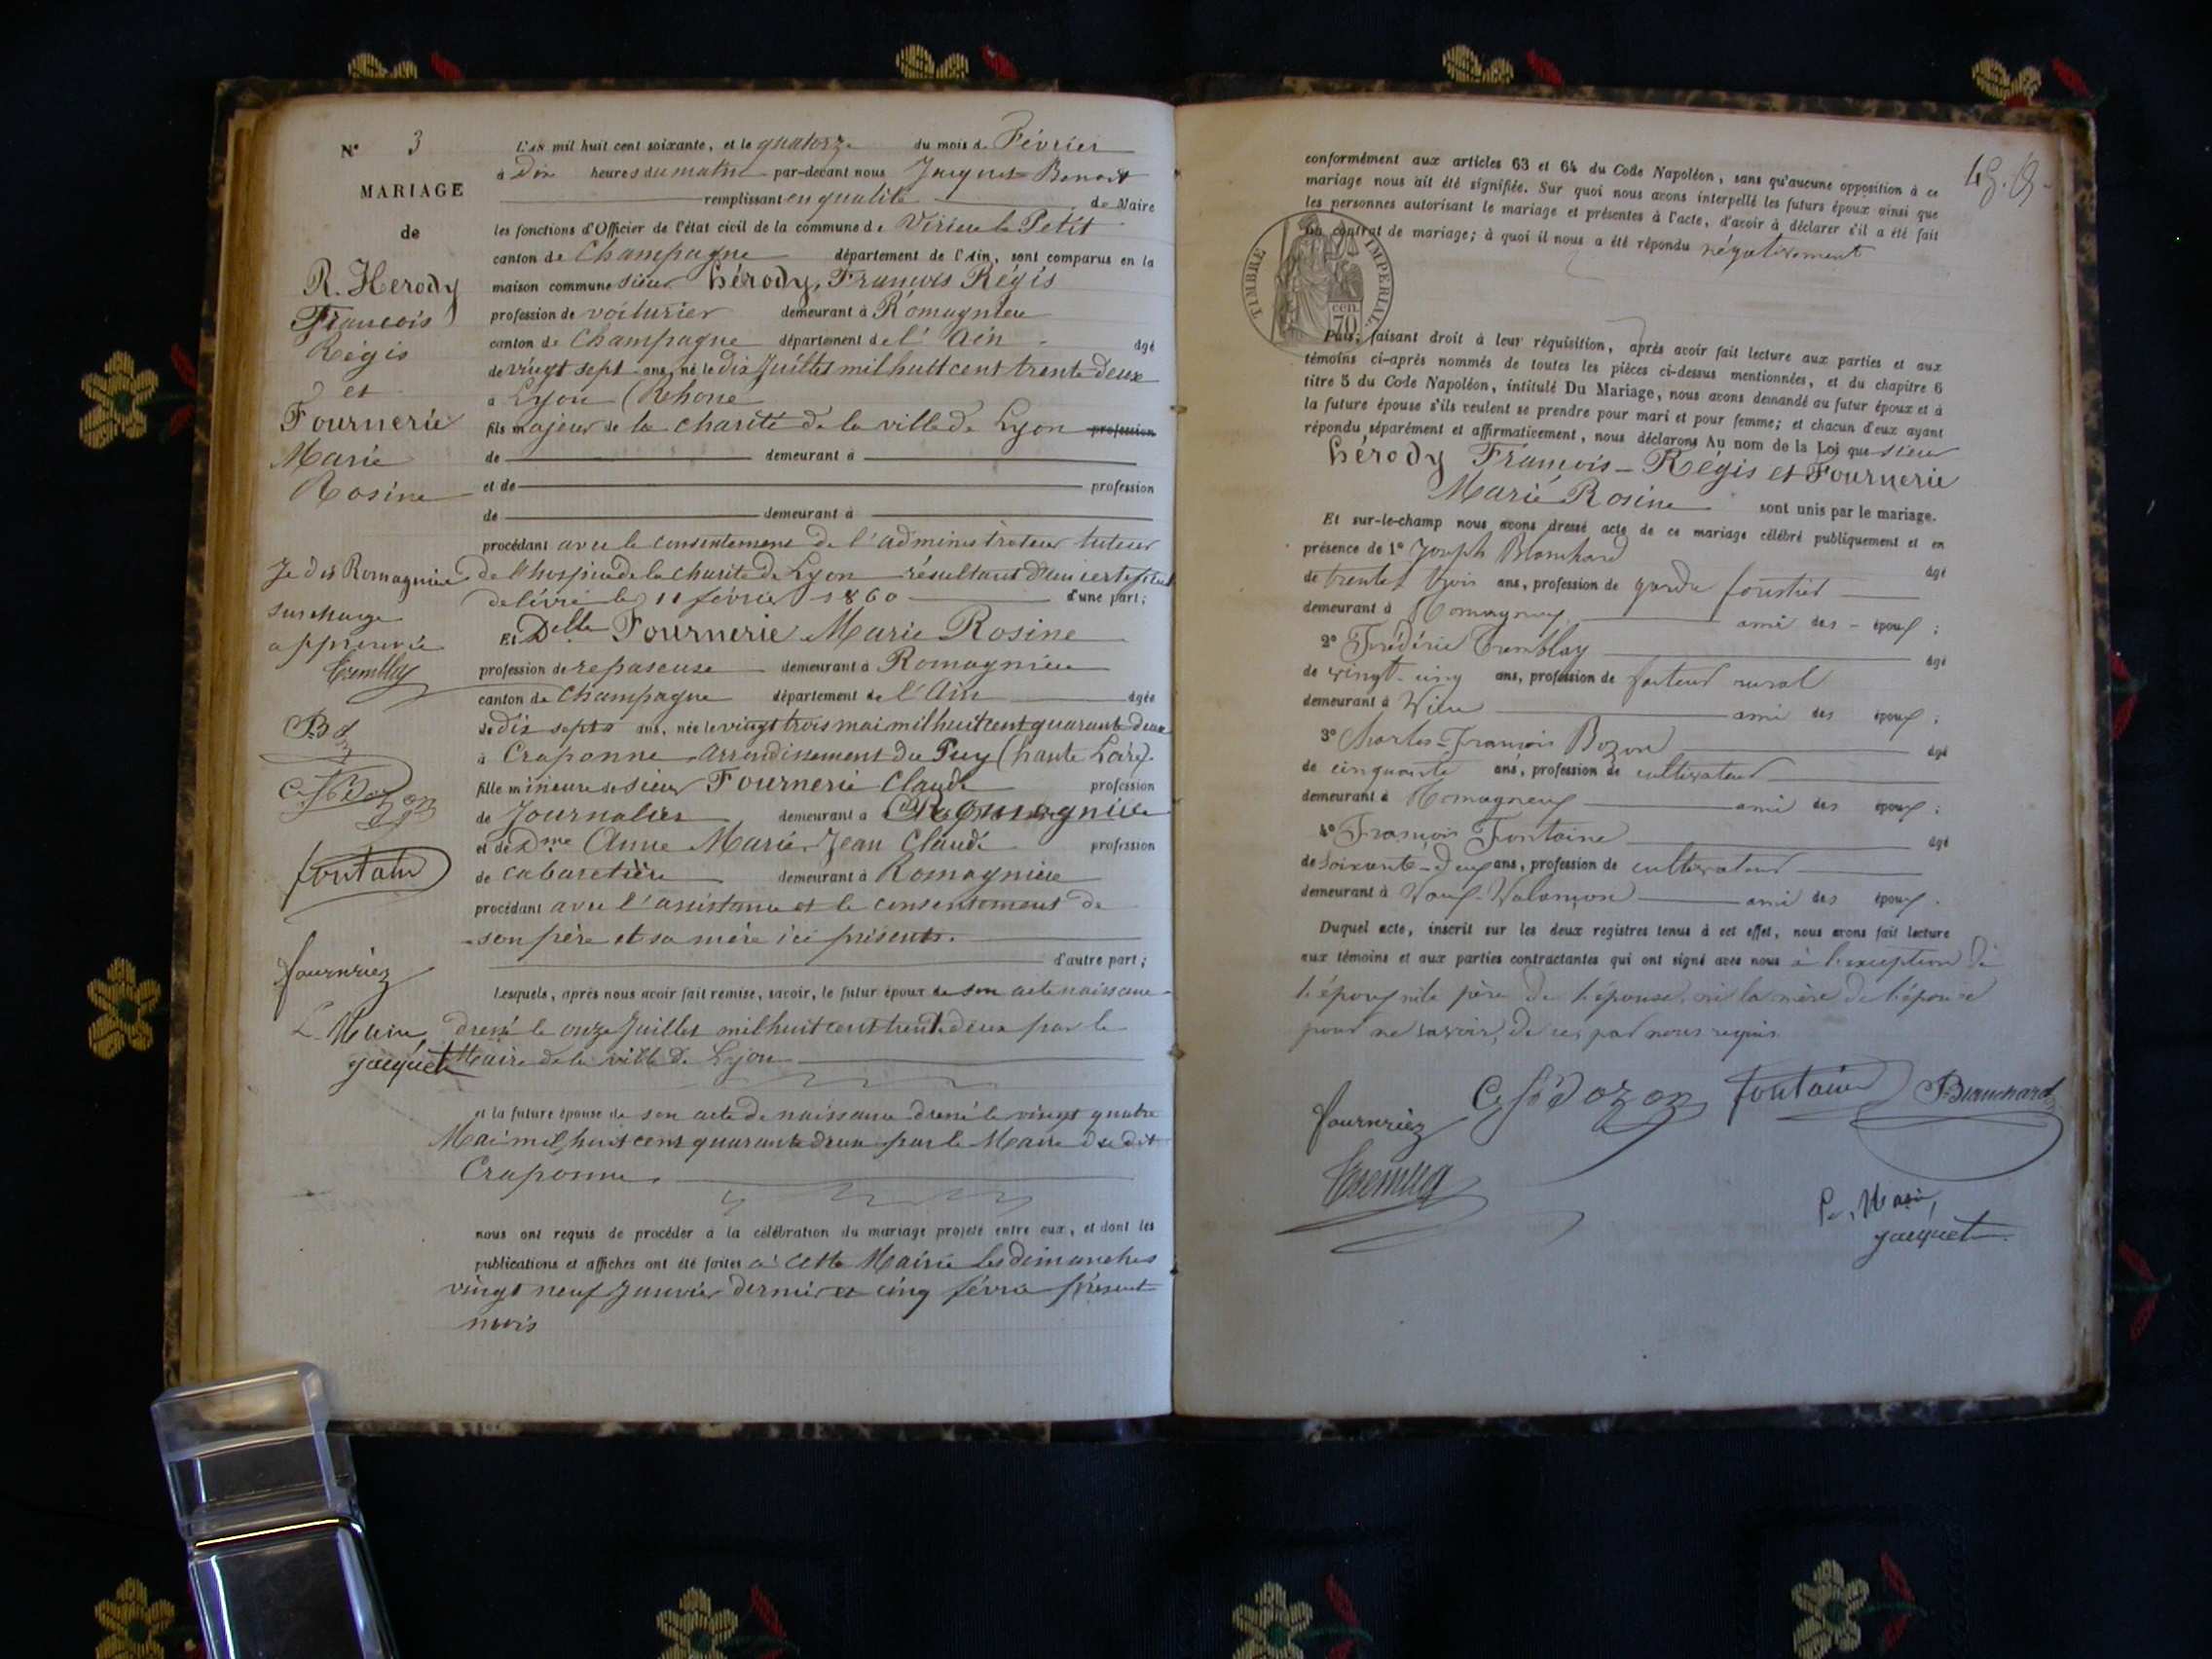 N° 3
MARIAGE
de
R. Herody
François
Régis
et
Fournerie
Marie
Rosine
Je dis Romagnieu
surcharge
approuvée
Tremblay
fontaine
fournriez
Le Maire,
Jacquet
L'an mil huit cent soixante, et le quatorze du mois de Février
à Dix heures du matin par-devant nous Jacquet Benoit
remplissant en qualité de Maire
les fonctions d'Officier de l'état civil de la commune de Virieu le Petit
canton de Champagne département de l'Ain, sont comparus en la
maison commune sieur hérody, François Régis
profession de voiturier demeurant à Romagnieu
canton de Champagne département de l'Ain âgé
de vingt sept ans, né le dix Juillet mil huit cent trente deux
à Lyon (Rhone
fils majeur de la charité de la ville de Lyon profession
de demeurant à
et de profession
de demeurant à
procédant avec le consentement de l'administrateur tuteur
de l'hospice de la charité de Lyon résultant d'un certificat
délivré le 11 février 1860 d'une part;
Et Delle Fournerie Marie Rosine
profession de repaseuse demeurant à Romagnieu
canton de Champagne département de l'Ain âgée
de dix sept ans, née le vingt trois mai mil huit cent quarante deux
à Craponne arrondissement du Puy (haute Loire)
fille mineure de sieur Fournerie Claude profession
de Journalier demeurant à Romagnieu
et de Dme Anne Marie Jean Claude profession
de cabaretière demeurant à Romagnieu
procédant avec l'assistance et le consentement de
son père et sa mère ici présents.
d'autre part;
Lesquels, après nous avoir fait remise, savoir, le futur époux de son acte naissance
dressé le onze Juillet mil huit cent trente deux par le
Maire de la ville de Lyon
et la future épouse de son acte de naissance dressé le vingt quatre
Mai mil huit cent quarante deux par le Maire du dit
Craponne
nous ont requis de procéder à la célébration du mariage projeté entre eux, et dont les
publications et affiches ont été faites à cette Mairie les dimanches
vingt neuf Janvier dernier et cinq février présent
mois
conformément aux articles 63 et 64 du Code Napoléon, sans qu'aucune opposition à ce
mariage nous ait été signifiée. Sur quoi nous avons interpellé les futurs époux ainsi que
les personnes autorisant le mariage et présentes à l'acte, d'avoir à déclarer s'il a été fait
un contrat de mariage; à quoi il nous a été répondu négativement
TIMBRE IMPERIAL
70 cen.
Puis, faisant droit à leur réquisition, après avoir fait lecture aux parties et aux
témoins ci-après nommés de toutes les pièces ci-dessus mentionnées, et du chapitre 6
titre 5 du Code Napoléon, intitulé Du Mariage, nous avons demandé au futur époux et à
la future épouse s'ils veulent se prendre pour mari et pour femme; et chacun d'eux ayant
répondu séparément et affirmativement, nous déclarons Au nom de la Loi que sieur
hérody François-Régis et Fournerie
Marie Rosine sont unis par le mariage.
Et sur-le-champ nous avons dressé acte de ce mariage célébré publiquement et en
présence de 1° Joseph Blanchard âgé
de trente trois ans, profession de garde forestier
demeurant à Romagneux ami des époux;
2° Frédéric Tremblay âgé
de vingt-cinq ans, profession de facteur rural
demeurant à ami des époux;
3° Charles-François Bozon âgé
de cinquante ans, profession de cultivateur
demeurant à Romagneux ami des époux;
4° François Fontaine âgé
de soixante-deux ans, profession de cultivateur
demeurant à ami des époux.
Duquel acte, inscrit sur les deux registres tenus à cet effet, nous avons fait lecture
aux témoins et aux parties contractantes qui ont signé avec nous à l'exception de
l'époux ni le père de l'épouse, ni la mère de l'épouse
pour ne savoir, de ce par nous requis
fournriez fontaine Blanchard
Le Maire,
Jacquet